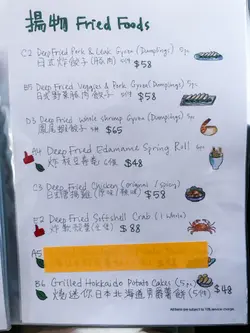 揚物 Fried Foods
C2 Deep Fried Pork & Leek Gyoza (Dumplings) 5pc
日式炸餃子(豚肉) 5件 $58
B5 Deep Fried Veggies & Pork Gyoza (Dumplings) 5pc
日式野菜豚肉餃子 5件 $58
D3 Deep Fried Whole Shrimp Gyoza (Dumplings)
鳳尾蝦餃子 5件 $65
A4 Deep Fried Edamame Spring Roll
炸枝豆春卷 6條 $48
C3 Deep Fried Chicken (original / spicy)
日式唐揚雞 (原味/辣味) $58
E2 Deep Fried Softshell Crab (1 Whole)
炸軟殼蟹 (1隻) $88
A5
B6 Grilled Hokkaido Potato Cakes (5pc)
燒迷你日本北海道男爵薯餅 (5件) $48
All items are subject to 10% service charge.